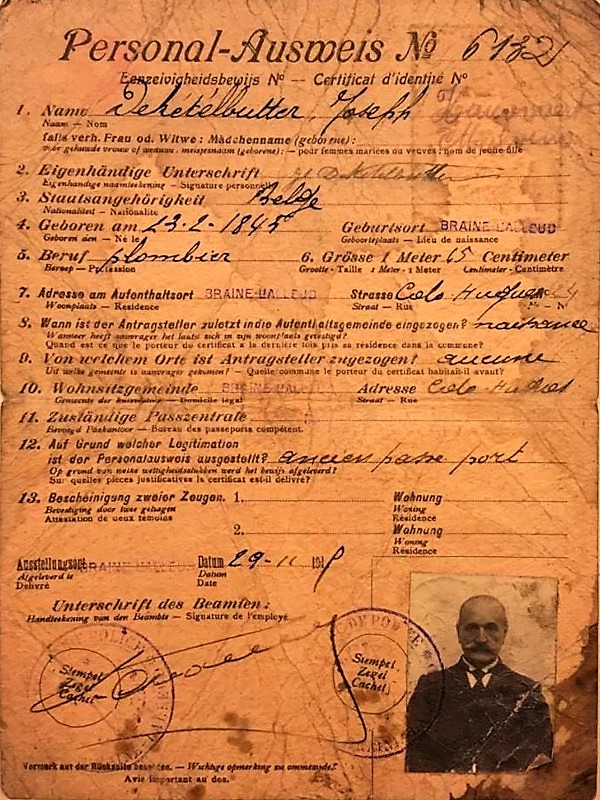 Personal-Ausweis No 6132
Eenzelvigheidsbewijs No — Certificat d'identité No
1. Name Joseph
Naam — Nom
falls verh. Frau od. Witwe: Mädchenname (geborene):
voor gehuwde vrouw of weduwe, meisjesnaam (geborene): — pour femmes mariées ou veuves: nom de jeune fille
2. Eigenhändige Unterschrift
Eigenhandige naamteekening — Signature personnelle
3. Staatsangehörigkeit Belge
Nationaliteit — Nationalité
4. Geboren am 23-2-1845 Geburtsort BRAINE-L'ALLEUD
Geboren den — Né le Geboorteplaats — Lieu de naissance
5. Beruf plombier 6. Grösse 1 Meter 65 Centimeter
Beroep — Profession Grootte - Taille 1 Meter - 1 Meter Centimeter - Centimètre
7. Adresse am Aufenthaltsort BRAINE-L'ALLEUD Strasse
Woonplaats — Residence Straat — Rue No — No
8. Wann ist der Antragsteller zuletzt in die Aufenthaltsgemeinde eingezogen? naissance
Wanneer heeft aanvrager het laatst zich op zijn woonplaats gevestigd?
Quand est ce que le porteur du certificat a la dernière fois pris sa résidence dans la commune?
9. Von welchem Orte ist Antragsteller zugezogen? aucune
Uit welke gemeente is aanvrager gekomen? — Quelle commune le porteur du certificat habitait-il avant?
10. Wohnsitzgemeinde BRAINE-L'ALLEUD Adresse
Gemeente der — Domicile légal Straat — Rue
11. Zuständige Passzentrale
Bevoegd Paskantoor — Bureau des passeports compétent.
12. Auf Grund welcher Legitimation
ist der Personalausweis ausgestellt? ancien passe port
Op grond van welke wettigheidsstukken werd het bewijs afgeleverd?
Sur quelles pièces justificatives le certificat est-il délivré?
13. Bescheinigung zweier Zeugen. 1. Wohnung
Bevestiging door twee getuigen Woning
Attestation de deux témoins Résidence
2. Wohnung
Woning
Résidence
Ausstellungsort BRAINE-L'ALLEUD Datum 29-11 191
Afgeleverd te Datum
Délivré Date
Unterschrift des Beamten:
Handteekening van den Beambte — Signature de l'employé
Stempel
Zegel
Cachet
Stempel
Zegel
Cachet
Vermerk auf der Rückseite beachten. — Wichtige opmerking zu ommezijde!
Avis important au dos.